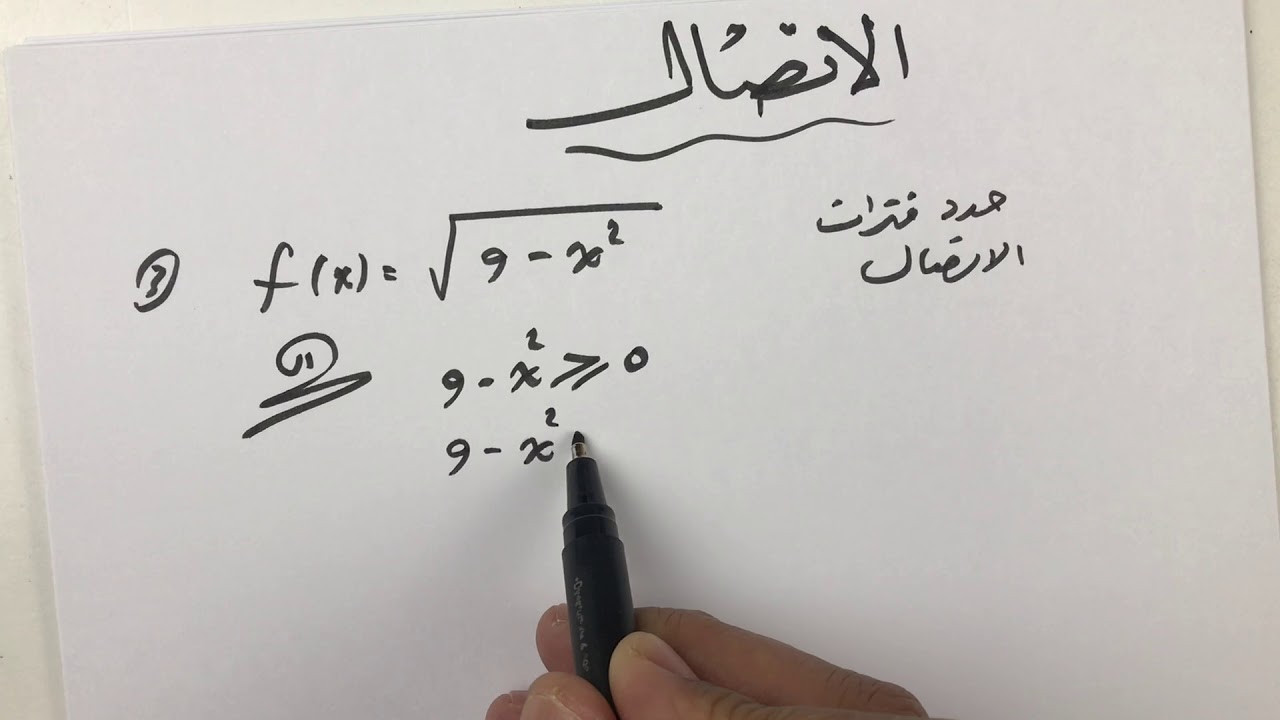 الاتصال
حدد فترات
الاتصال
③ f(x) = √(9 - x²)
9 - x² ≥ 0
9 - x²